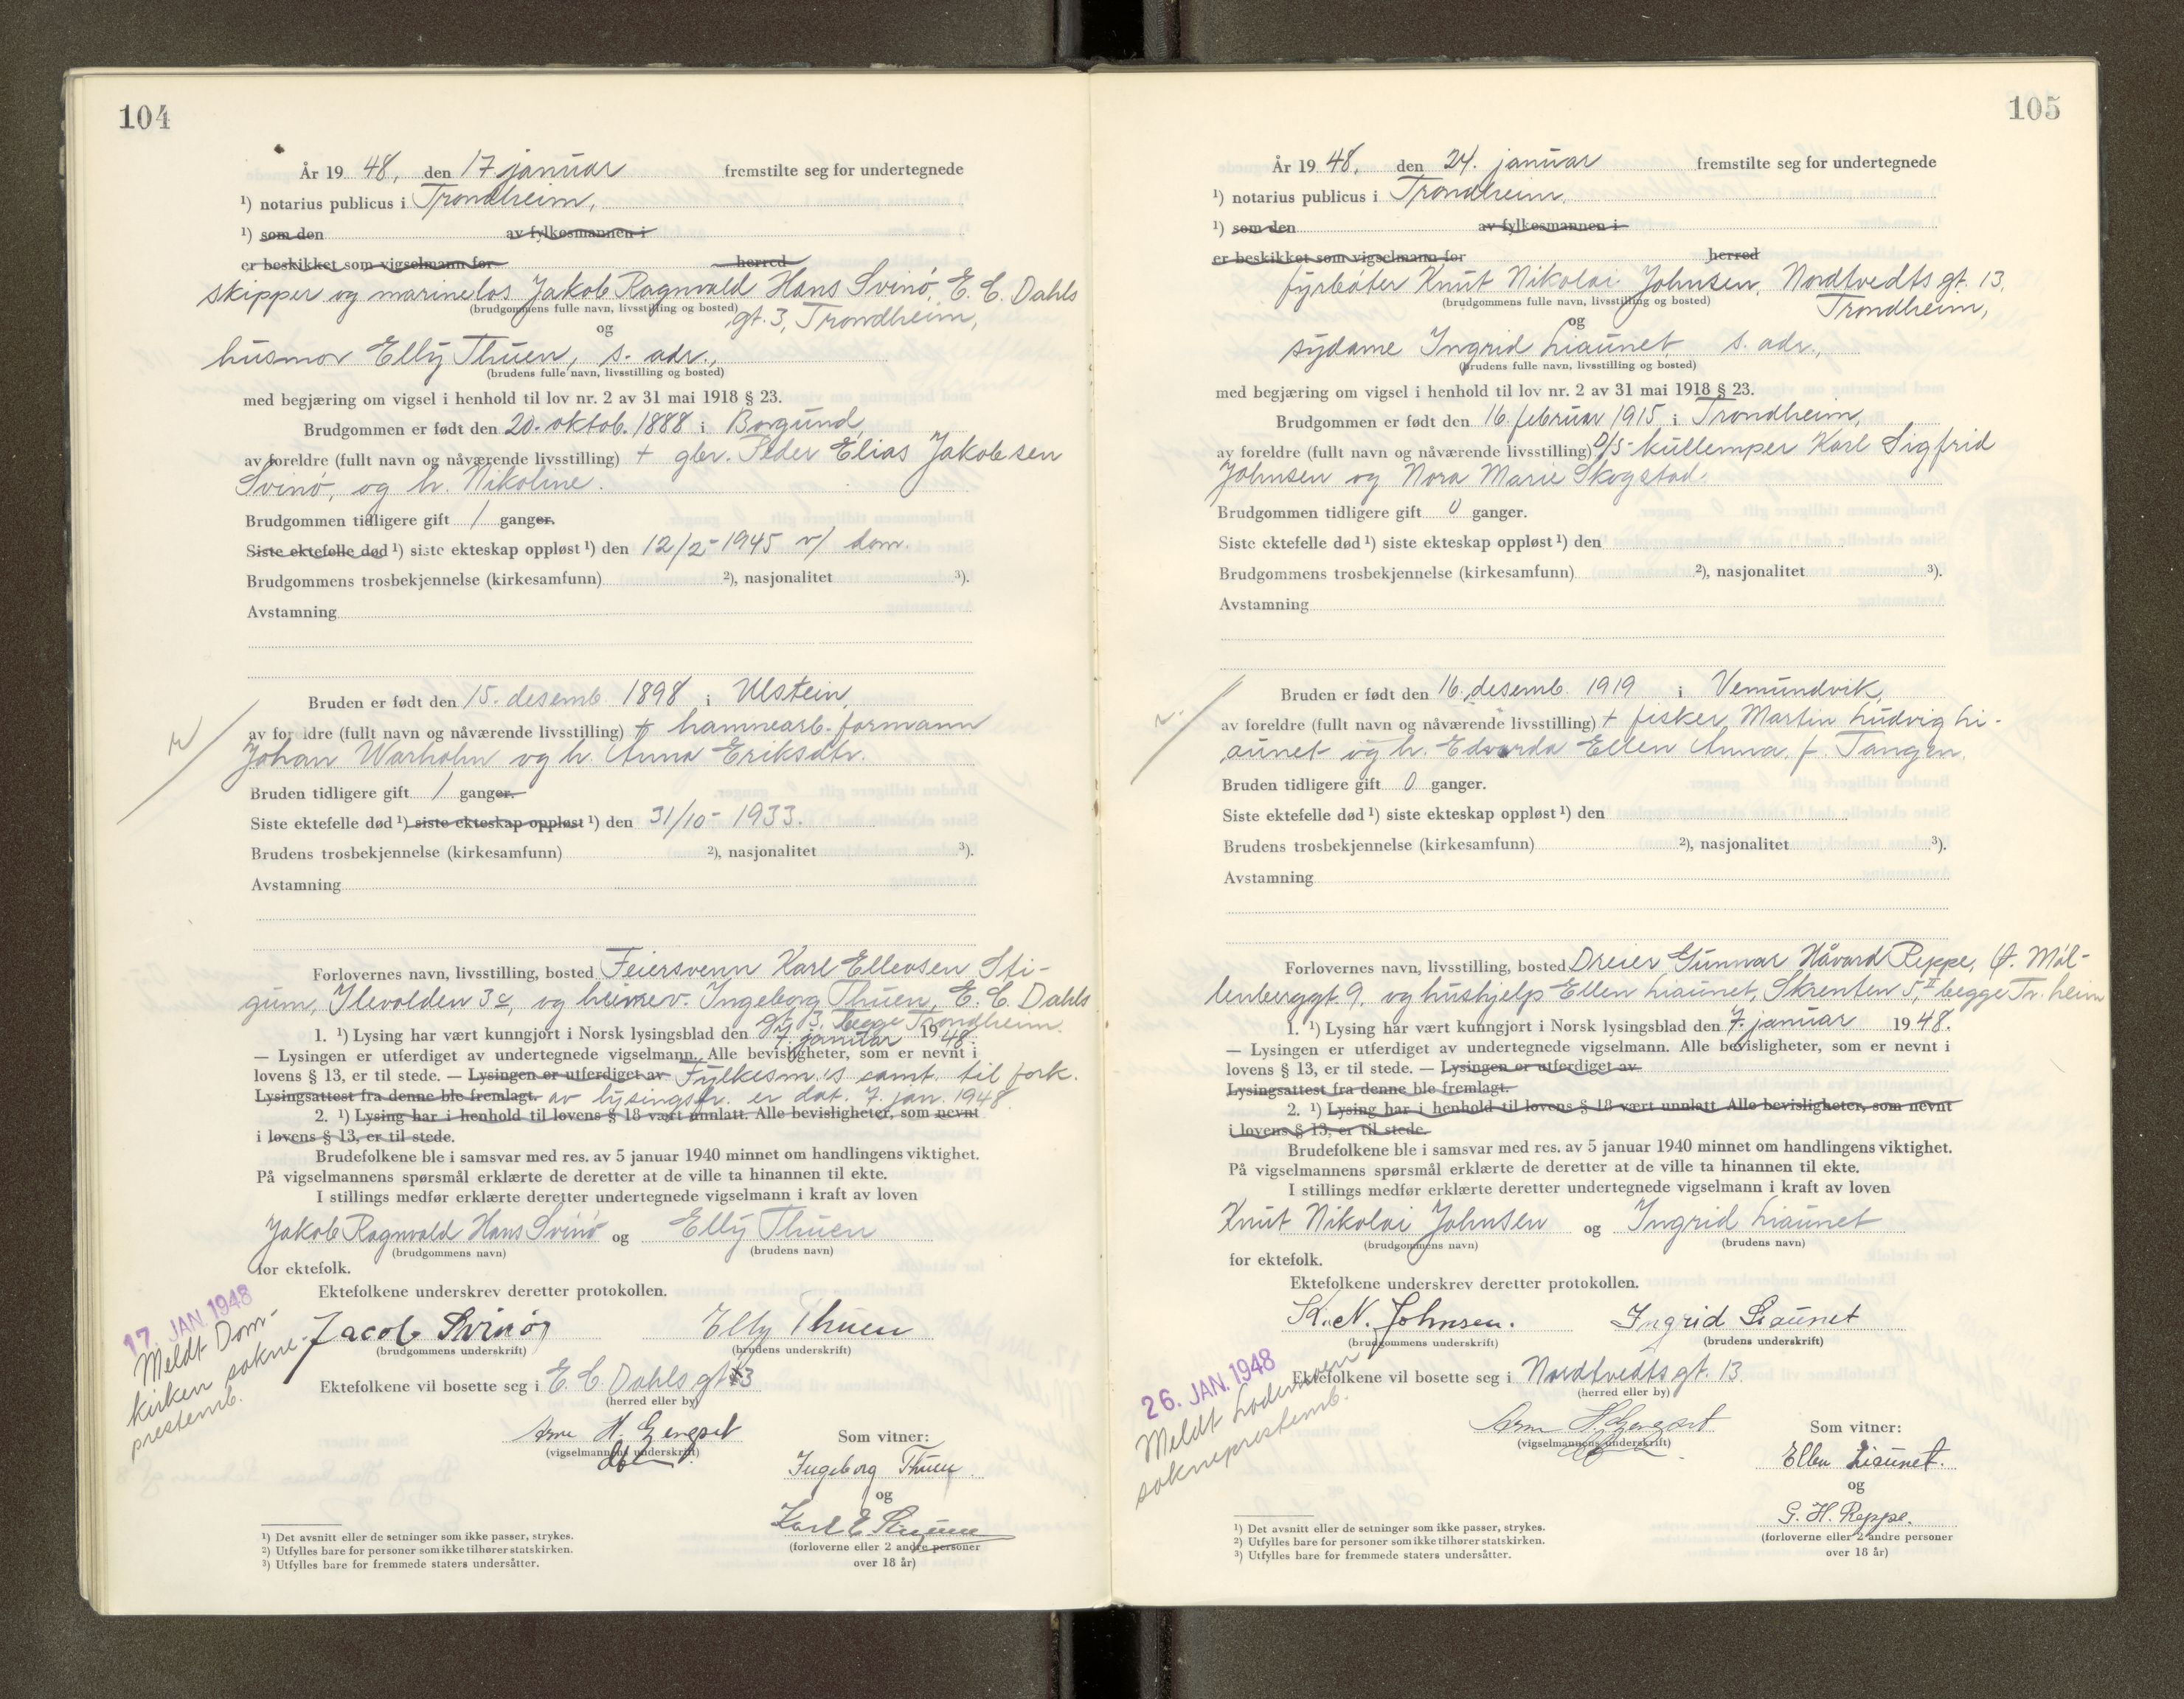 104
År 19 48, den 17 januar fremstilte seg for undertegnede
¹) notarius publicus i Trondheim,
¹) som den av fylkesmannen i
er beskikket som vigselmann for herred
skipper og marinelos Jakob Ragnvald Hans Svinö, E. C. Dahls
(brudgommens fulle navn, livsstilling og bosted) gt. 3, Trondheim,
og
husmor Elly Thuen, s. adr.,
(brudens fulle navn, livsstilling og bosted)
med begjæring om vigsel i henhold til lov nr. 2 av 31 mai 1918 § 23.
Brudgommen er født den 20. oktob. 1888 i Borgund,
av foreldre (fullt navn og nåværende livsstilling) + gbr. Peder Elias Jakobsen
Svinö, og h. Nikoline.
Brudgommen tidligere gift 1 ganger.
Siste ektefelle død ¹) siste ekteskap oppløst ¹) den 12/2-1945 v/ dom.
Brudgommens trosbekjennelse (kirkesamfunn) ²), nasjonalitet ³).
Avstamning
Bruden er født den 15. desemb. 1898 i Ulstein,
av foreldre (fullt navn og nåværende livsstilling) + havnearb. formann
Johan Warholm og h. Anna Eriksdtr.
Bruden tidligere gift 1 ganger.
Siste ektefelle død ¹) siste ekteskap oppløst ¹) den 31/10-1933.
Brudens trosbekjennelse (kirkesamfunn) ²), nasjonalitet ³).
Avstamning
Forlovernes navn, livsstilling, bosted Feiersvenn Karl Ellevsen Sti-
gum, Ilevolden 3c, og heimev. Ingeborg Thuen, E. C. Dahls
gt. 3, begge Trondheim.
1. ¹) Lysing har vært kunngjort i Norsk lysingsblad den 7. januar 19 48.
— Lysingen er utferdiget av undertegnede vigselmann. Alle bevisligheter, som er nevnt i
lovens § 13, er til stede. — Lysingen er utferdiget av Fylkesm.'s samt. til fork.
Lysingsattest fra denne ble fremlagt. av lysingsfr. er dat. 7. jan. 1948.
2. ¹) Lysing har i henhold til lovens § 18 vært unnlatt. Alle bevisligheter, som nevnt
i lovens § 13, er til stede.
Brudefolkene ble i samsvar med res. av 5 januar 1940 minnet om handlingens viktighet.
På vigselmannens spørsmål erklærte de deretter at de ville ta hinannen til ekte.
I stillings medfør erklærte deretter undertegnede vigselmann i kraft av loven
Jakob Ragnvald Hans Svinö og Elly Thuen
(brudgommens navn) (brudens navn)
for ektefolk.
Ektefolkene underskrev deretter protokollen.
17. JAN. 1948
Meldt Dom-
kirken sokne-
prestemb.
Jacob Svinöy Elly Thuen
(brudgommens underskrift) (brudens underskrift)
Ektefolkene vil bosette seg i E. C. Dahls gt 3
(herred eller by)
Arne H. Gengset
(vigselmannens underskrift)
Som vitner:
Ingeborg Thuen.
og
Karl E. Stigum
(forloverne eller 2 andre personer
over 18 år)
¹) Det avsnitt eller de setninger som ikke passer, strykes.
²) Utfylles bare for personer som ikke tilhører statskirken.
³) Utfylles bare for fremmede staters undersåtter.
105
År 19 48, den 24. januar fremstilte seg for undertegnede
¹) notarius publicus i Trondheim,
¹) som den av fylkesmannen i
er beskikket som vigselmann for herred
fyrböter Knut Nikolai Johnsen, Nordtvedts gt. 13,
(brudgommens fulle navn, livsstilling og bosted) Trondheim,
og
sydame Ingrid Liaunet, s. adr.,
(brudens fulle navn, livsstilling og bosted)
med begjæring om vigsel i henhold til lov nr. 2 av 31 mai 1918 § 23.
Brudgommen er født den 16. februar 1915 i Trondheim,
av foreldre (fullt navn og nåværende livsstilling) D/S-kullemper Karl Sigfrid
Johnsen og Nora Marie Skogstad.
Brudgommen tidligere gift 0 ganger.
Siste ektefelle død ¹) siste ekteskap oppløst ¹) den
Brudgommens trosbekjennelse (kirkesamfunn) ²), nasjonalitet ³).
Avstamning
Bruden er født den 16. desemb. 1919 i Vemundvik,
av foreldre (fullt navn og nåværende livsstilling) + fisker Martin Ludvig Li-
aunet og h. Edvarda Ellen Anna, f. Tangen.
Bruden tidligere gift 0 ganger.
Siste ektefelle død ¹) siste ekteskap oppløst ¹) den
Brudens trosbekjennelse (kirkesamfunn) ²), nasjonalitet ³).
Avstamning
Forlovernes navn, livsstilling, bosted Dreier Gunnar Håvard Reppe, Ø. Möl-
lenberggt. 9, og hushjelp Ellen Liaunet, Skrenten 5, II begge Tr.heim
1. ¹) Lysing har vært kunngjort i Norsk lysingsblad den 7. januar 19 48.
— Lysingen er utferdiget av undertegnede vigselmann. Alle bevisligheter, som er nevnt i
lovens § 13, er til stede. — Lysingen er utferdiget av
Lysingsattest fra denne ble fremlagt.
2. ¹) Lysing har i henhold til lovens § 18 vært unnlatt Alle bevisligheter, som nevnt
i lovens § 13, er til stede.
Brudefolkene ble i samsvar med res. av 5 januar 1940 minnet om handlingens viktighet.
På vigselmannens spørsmål erklærte de deretter at de ville ta hinannen til ekte.
I stillings medfør erklærte deretter undertegnede vigselmann i kraft av loven
Knut Nikolai Johnsen og Ingrid Liaunet
(brudgommens navn) (brudens navn)
for ektefolk.
Ektefolkene underskrev deretter protokollen.
K. N. Johnsen. Ingrid Liaunet
(brudgommens underskrift) (brudens underskrift)
26. JAN. 1948
Meldt Lademoen
sokneprestemb.
Ektefolkene vil bosette seg i Nordtvedts gt. 13.
(herred eller by)
Arne H. Gengset
(vigselmannens underskrift)
Som vitner:
Ellen Liaunet.
og
G. H. Reppe.
(forloverne eller 2 andre personer
over 18 år)
¹) Det avsnitt eller de setninger som ikke passer, strykes.
²) Utfylles bare for personer som ikke tilhører statskirken.
³) Utfylles bare for fremmede staters undersåtter.